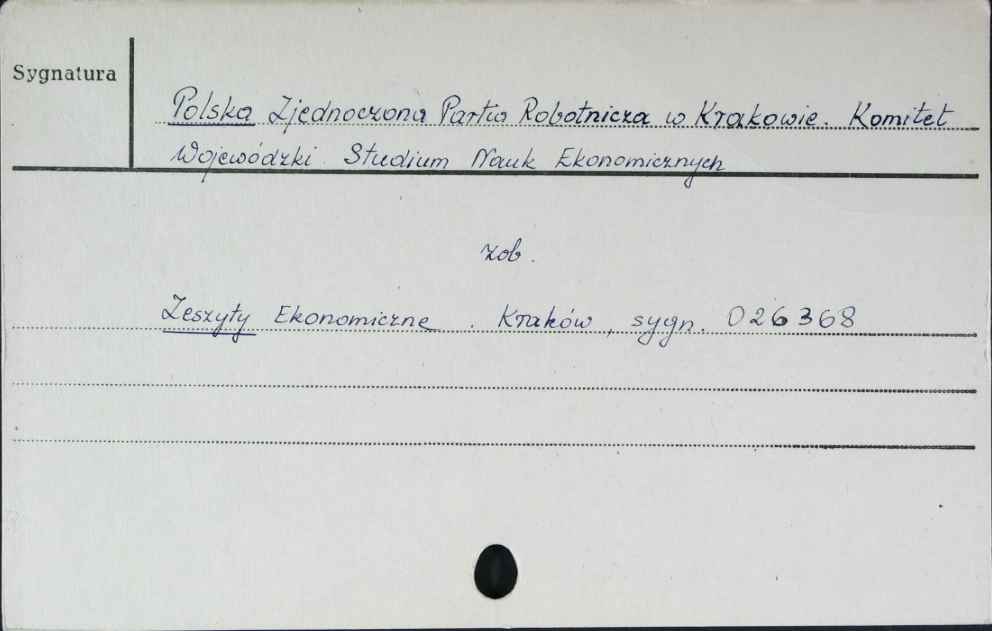 Sygnatura
Polska Zjednoczona Partia Robotnicza w Krakowie. Komitet
Wojewódzki. Studium Nauk Ekonomicznych
zob.
Zeszyty Ekonomiczne. Kraków, sygn. 026368